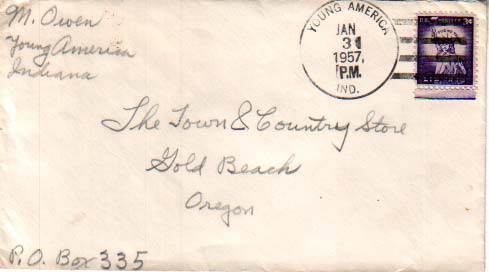 M. Owen
Young America
Indiana
YOUNG AMERICA
JAN
31
1957
P.M.
IND.
3¢
The Town & Country Store
Gold Beach
Oregon
P.O. Box 335